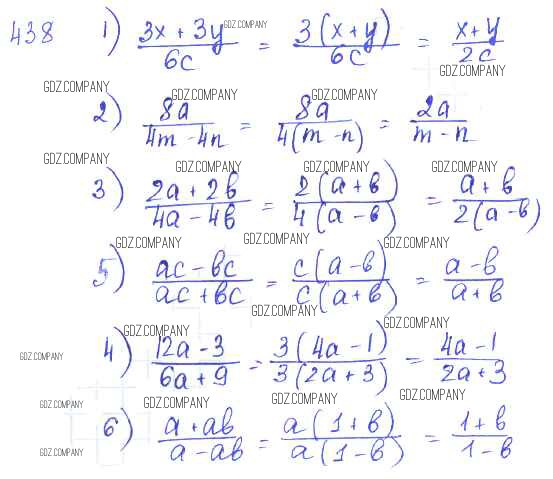 438 1) (3x + 3y)/(6c) = (3(x + y))/(6c) = (x + y)/(2c)
GDZ.COMPANY
GDZ.COMPANY
GDZ.COMPANY GDZ.COMPANY GDZ.COMPANY
2) (8a)/(4m - 4n) = (8a)/(4(m - n)) = (2a)/(m - n)
GDZ.COMPANY GDZ.COMPANY GDZ.COMPANY
3) (2a + 2b)/(4a - 4b) = (2(a + b))/(4(a - b)) = (a + b)/(2(a - b))
GDZ.COMPANY GDZ.COMPANY GDZ.COMPANY
5) (ac - bc)/(ac + bc) = (c(a - b))/(c(a + b)) = (a - b)/(a + b)
GDZ.COMPANY
GDZ.COMPANY GDZ.COMPANY GDZ.COMPANY
4) (12a - 3)/(6a + 9) = (3(4a - 1))/(3(2a + 3)) = (4a - 1)/(2a + 3)
GDZ.COMPANY GDZ.COMPANY GDZ.COMPANY GDZ.COMPANY
6) (a + ab)/(a - ab) = (a(1 + b))/(a(1 - b)) = (1 + b)/(1 - b)
GDZ.COMPANY